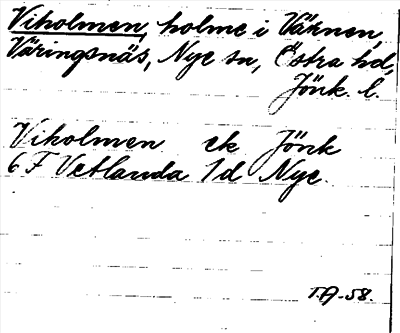 Viholmen, holme i Väknen,
Väringsnäs, Nye sn, Östra hd,
Jönk. l.
Viholmen ek Jönk
6 F Vetlanda 1d Nye.
T.A-58.